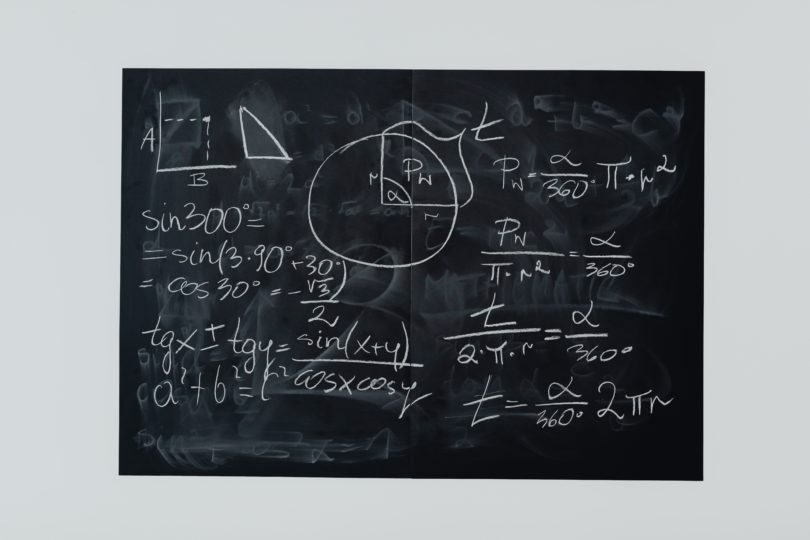 A
B
sin300°=
=sin(3·90°+30°)
= cos30° = -√3/2
tgx ± tgy = sin(x+y)/cosxcosy
a²+b²=c²
t
r
P_W
α
r
P_W = α/360° · π · r²
P_W/π·r² = α/360°
t/2·π·r = α/360°
t = α/360° 2πr